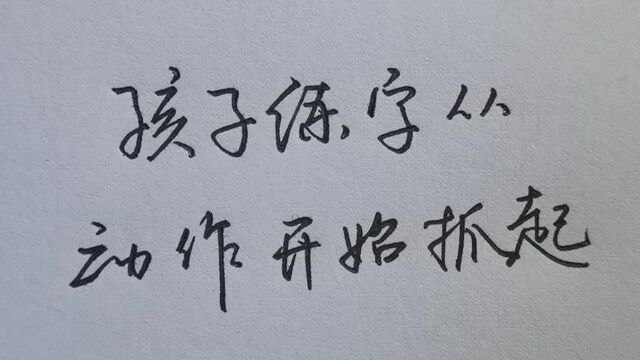 孩子练字从
动作开始抓起